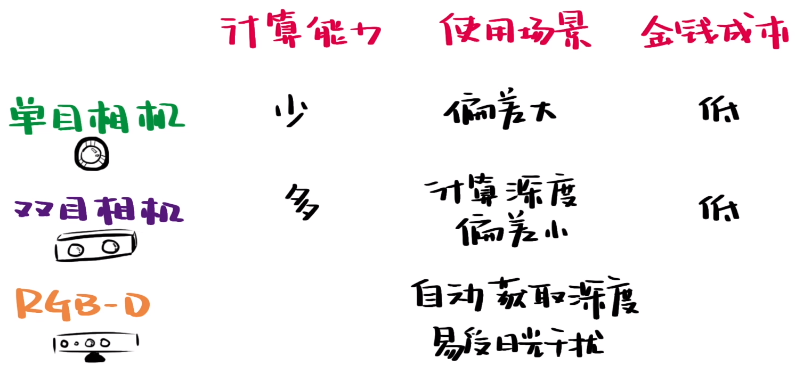 计算能力 使用场景 金钱成本
单目相机 少 偏差大 低
双目相机 多 计算深度 低
偏差小
RGB-D 自动获取深度
易受日光干扰